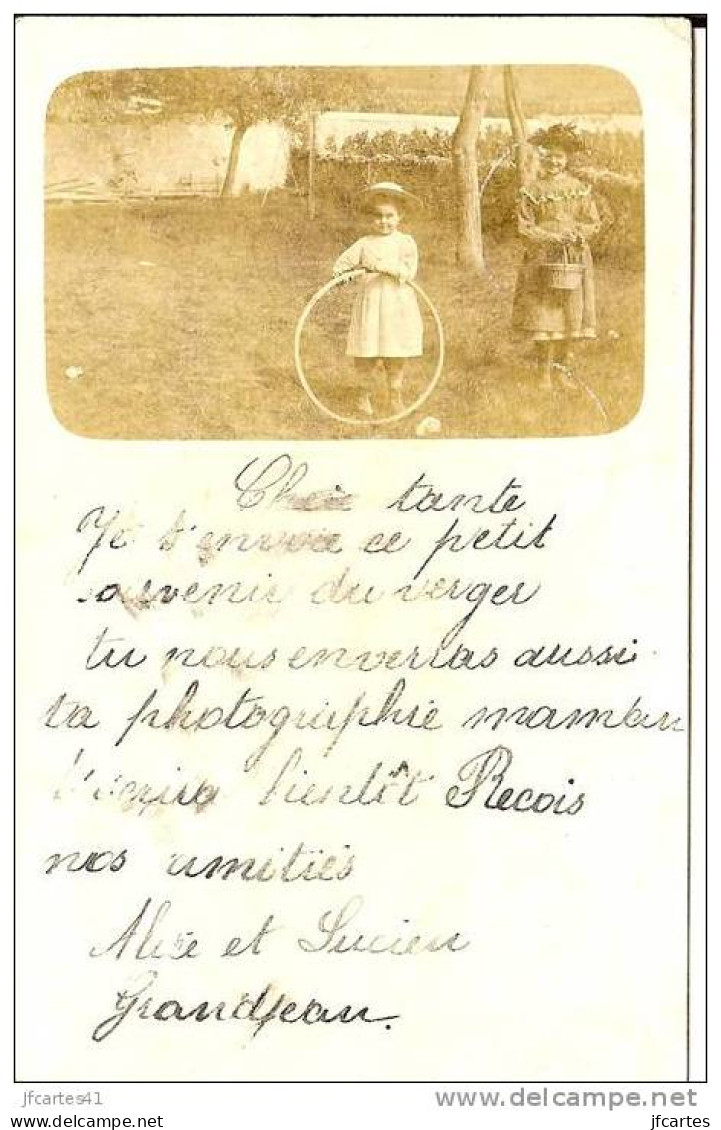 Chère tante
Je t'envoie ce petit
souvenir du verger
tu nous enverras aussi
ta photographie maman
t'écrira bientôt Recois
nos amitiés
Alice et Lucien
Grandjean.
jfcartes41
www.delcampe.net
jfcartes